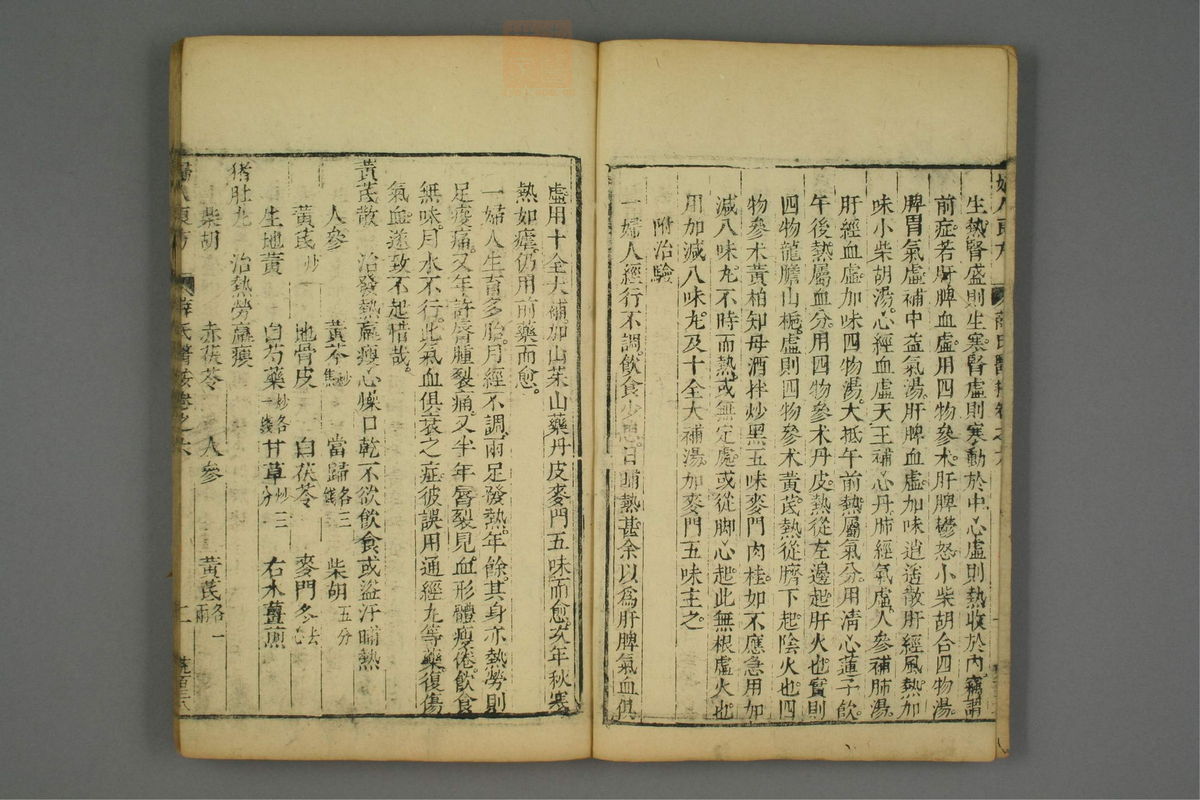 生熱腎盛則生寒腎虛則寒動於中心虛則熱收於內竊謂
前症若肝脾血虛用四物參术肝脾鬱怒小柴胡合四物湯
脾胃氣虛補中益氣湯肝脾血虛加味逍遙散肝經風熱加
味小柴胡湯心經血虛天王補心丹肺經氣虛人參補肺湯
肝經血虛加味四物湯大抵午前熱屬氣分用清心蓮子飲
午後熱屬血分用四物參术丹皮熱從左邊起肝火也實則
四物龍膽山梔虛則四物參术黃芪熱從臍下起陰火也四
物參术黃柏知母酒拌炒黑五味麥門肉桂如不應急用加
減八味丸不時而熱或無定處或從脚心起此無根虛火也
用加減八味丸及十全大補湯加麥門五味主之
附治驗
一婦人經行不調飲食少思日晡熱甚余以爲肝脾氣血俱
虛用十全大補加山茱山藥丹皮麥門五味而愈次年秋寒
熱如瘧仍用前藥而愈
一婦人生育多胎月經不調兩足發熱年餘其身亦熱勞則
足痠痛又年許唇腫裂痛又半年唇裂見血形體瘦倦飲食
無味月水不行此氣血俱衰之症彼誤用通經丸等藥復傷
氣血遂致不起惜哉
黃芪散 治發熱羸瘦心燥口乾不欲飲食或盜汗晡熱
人參 黃芩炒焦 當歸各三錢 柴胡五分
黃芪炒 地骨皮 白茯苓 麥門冬去心
生地黃 白芍藥炒各一錢 甘草炒三分 右水薑煎
猪肚丸 治熱勞羸瘦
柴胡 赤茯苓 人參 黃芪各一兩
婦人良方 薛氏醫按卷之六